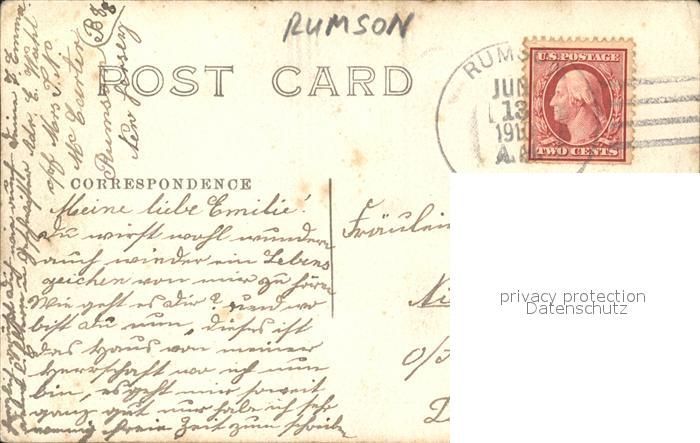 RUMSON
POST CARD
RUMS
JUN
13
191
A.M
U.S. POSTAGE
TWO CENTS
CORRESPONDENCE
Meine liebe Emilie!
Du wirst wohl wundern
auch wieder ein Lebens
zeichen von mir zu hören
Wie geht es dir? und wo
bist du nun, dieses ist
das Haus von meiner
Herrschaft wo ich nun
bin, es geht mir soweit
ganz gut nur habe ich sehr
wenig freie Zeit zum schreiben
Fräulein
Ni
O/S
privacy protection
Datenschutz
Mc Carter
Rumson
New Jersey